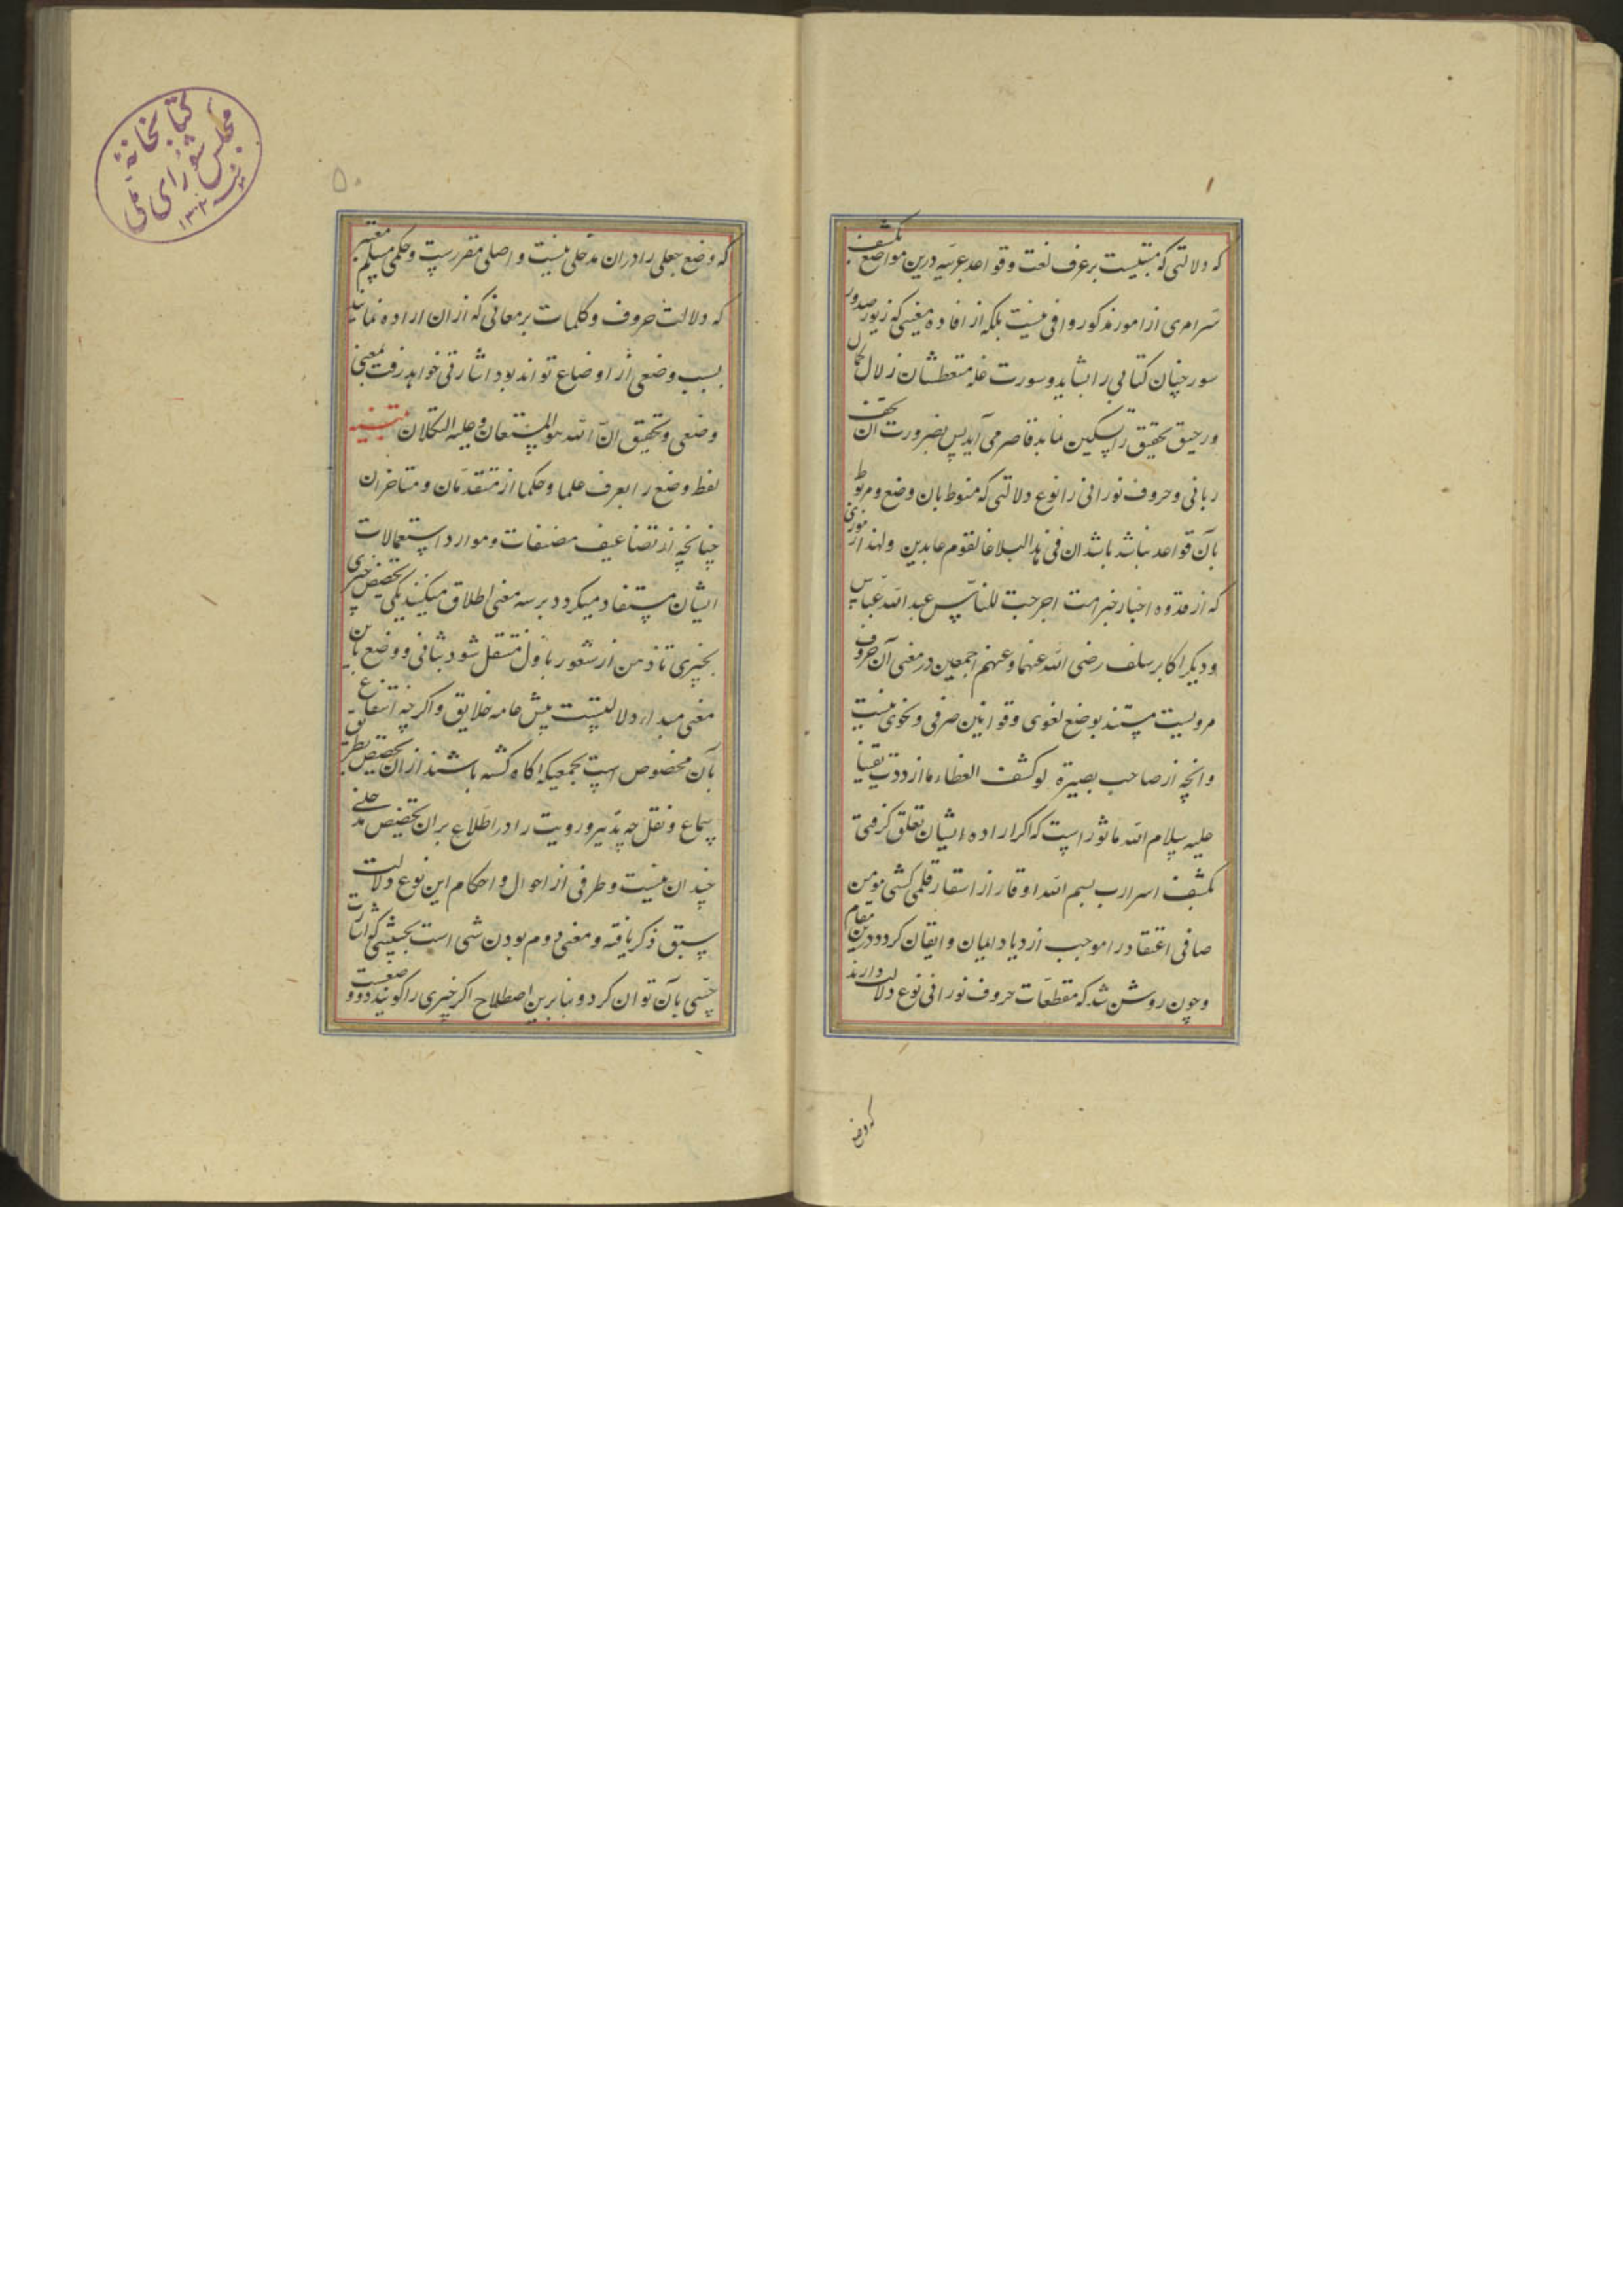 که دلالتی که مبتنیست بر عرف لغت و قواعد عربیه درین مواضع بکشف
سرّ امری از امور مذکور وافی نیست بلکه از افاده معنیی که زیور صدور
سور چنان کتابی را شاید و سورت غله متعطشان زلال کمال
و رحیق تحقیق را تسکین نماید قاصر می آید پس بضرورت آن تحف
ربانی و حروف نورانی را نوع دلالتی که منوط بان وضع و مربوط
بآن قواعد نباشد باشد ان فی هذا لبلاغا لقوم عابدین ولهذا از
که از قدوه اخبار خیر امت اخرجت للناس عبد الله عباس
و دیگر اکابر سلف رضی الله عنهما و عنهم اجمعین در معنی آن حروف
مرویست مستند بوضع لغوی و قوانین صرفی و نحوی نیست
وانچه از صاحب بصیرة لو کشف الغطاء ما ازددت یقینا
علیه سلام الله ماثور است که اگر اراده ایشان تعلق گرفتی
بکشف اسرار ب بسم الله اوقار از اسفار قلمی گشتی مومن
صافی اعتقاد را موجب ازدیاد ایمان و ایقان کردد درین مقام
و چون روشن شد که مقطعات حروف نورانی نوع دلالت دارند
که وضع
۵۰
که وضع جعلی را دران مدخلی نیست و اصلی مقررست و حکمی مسلم معتبر
که دلالت حروف و کلمات بر معانی که از ان اراده نمایند
بسبب وضعی از اوضاع تواند بود اشارتی خواهد رفت بمعنی
وضعی و تحقیق ان الله هو المستعان و علیه التکلان تنبیه
لفظ وضع را بعرف علما و حکما از متقدمان و متاخران
چنانچه از تضاعیف مصنفات و موارد استعمالات
ایشان مستفاد میکردد بر سه معنی اطلاق میکنند یکی تخصیص چیزی
بچیزی تا ذهن از شعور باول منتقل شود بثانی و وضع باین
معنی مبداء دلالتست پیش عامه خلایق و اکرچه انتفاع
بآن مخصوص است بجمعی که اکاه کشته باشند از ان تخصیص بطریق
سماع و نقل چه تدبیر و رویت را در اطلاع بر ان تخصیص مدخلی
چندان نیست و طرفی از احوال و احکام این نوع دلالت
سبق ذکر یافته و معنی دوم بودن شی است بحیثیتی که اشارت
حسّی بآن توان کرد و بنابرین اصطلاح اکر چیزی را کویند ذو وضعست
کتابخانهٔ
مجلس شورای ملی
۱۳۰۲